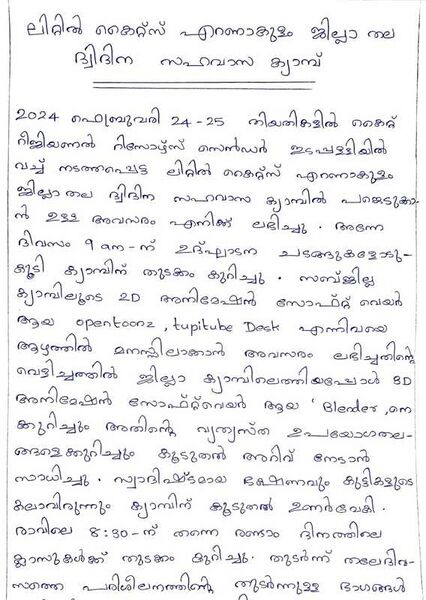 ലിറ്റിൽ കൈറ്റ്സ് എറണാകുളം ജില്ലാ തല
ദ്വിദിന സഹവാസ ക്യാമ്പ്
2024 ഫെബ്രുവരി 24-25 തിയതികളിൽ കൈറ്റ്
റീജിയണൽ റിസോഴ്സ് സെൻ്റർ ഇടപ്പള്ളിയിൽ
വച്ച് നടത്തപ്പെട്ട ലിറ്റിൽ കൈറ്റ്സ് എറണാകുളം
ജില്ലാ തല ദ്വിദിന സഹവാസ ക്യാമ്പിൽ പങ്കെടുക്കാ-
ൻ ഉള്ള അവസരം എനിക്ക് ലഭിച്ചു. അന്നേ
ദിവസം 9 am-ന് ഉദ്ഘാടന ചടങ്ങുകളോടു-
കൂടി ക്യാമ്പിന് തുടക്കം കുറിച്ചു. സബ്ജില്ല
ക്യാമ്പിലൂടെ 2D അനിമേഷൻ സോഫ്റ്റ് വെയർ
ആയ opentoonz, tupitube Desk എന്നിവയെ
ആഴത്തിൽ മനസ്സിലാക്കാൻ അവസരം ലഭിച്ചതിന്റെ
വെളിച്ചത്തിൽ ജില്ലാ ക്യാമ്പിലെത്തിയപ്പോൾ 3D
അനിമേഷൻ സോഫ്റ്റ്‌വെയർ ആയ 'Blender,നെ
ക്കുറിച്ചും അതിന്റെ വ്യത്യസ്ത ഉപയോഗതല-
ങ്ങളെക്കുറിച്ചും കൂടുതൽ അറിവ് നേടാൻ
സാധിച്ചു. സ്വാദിഷ്ടമായ ഭക്ഷണവും കുട്ടികളുടെ
കലാവിരുന്നും ക്യാമ്പിന് കൂടുതൽ ഉണർവേകി.
രാവിലെ 8:30-ന് തന്നെ രണ്ടാം ദിനത്തിലെ
ക്ലാസുകൾക്ക് തുടക്കം കുറിച്ചു. തുടർന്ന് തലേദിവ-
സത്തെ പരിശീലനത്തിന്റെ തുടർന്നുള്ള ഭാഗങ്ങൾ